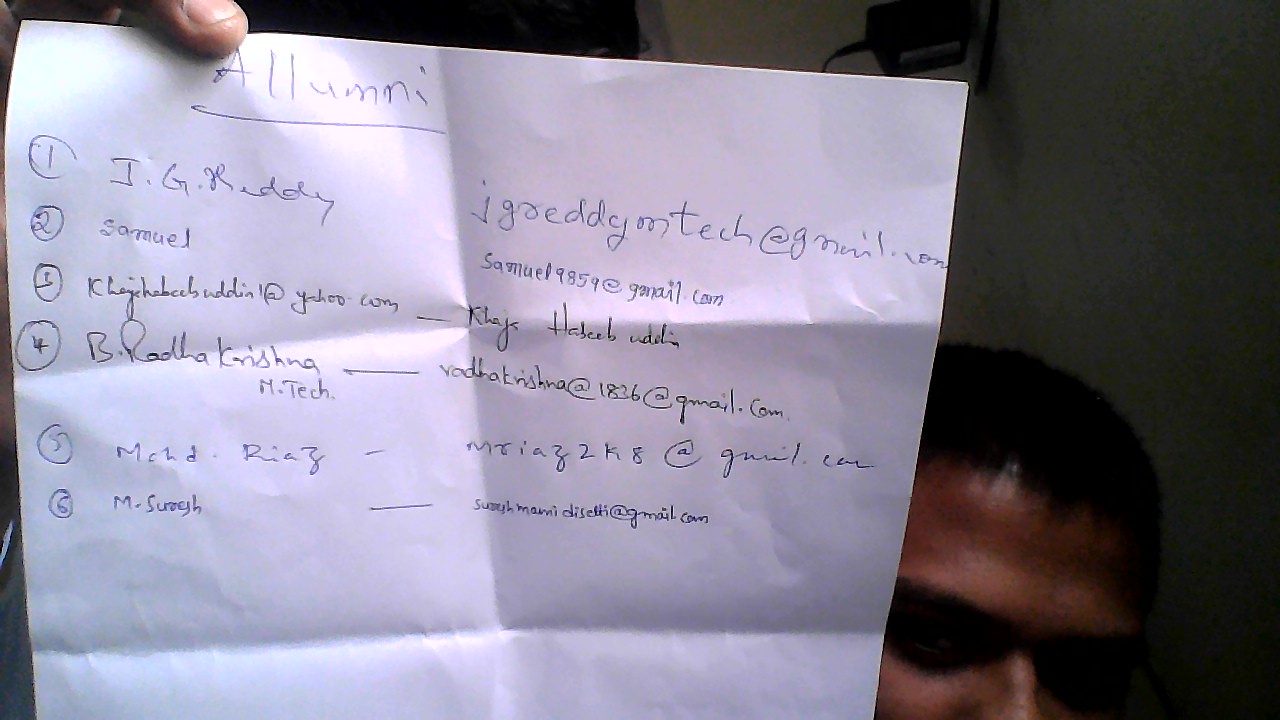 Allumni
① J.G.Reddy jgreddymtech@gmail.com
② Samuel Samuel9859@gmail.com
③ Khajahabeebuddin1@yahoo.com — Khaja Habeeb uddin
④ B.Radha Krishna — radhakrishna@1836@gmail.com.
M.Tech.
⑤ Mohd. Riaz - mriaz2k8@gmail.com
⑥ M.Suresh — sureshmamidisetti@gmail.com